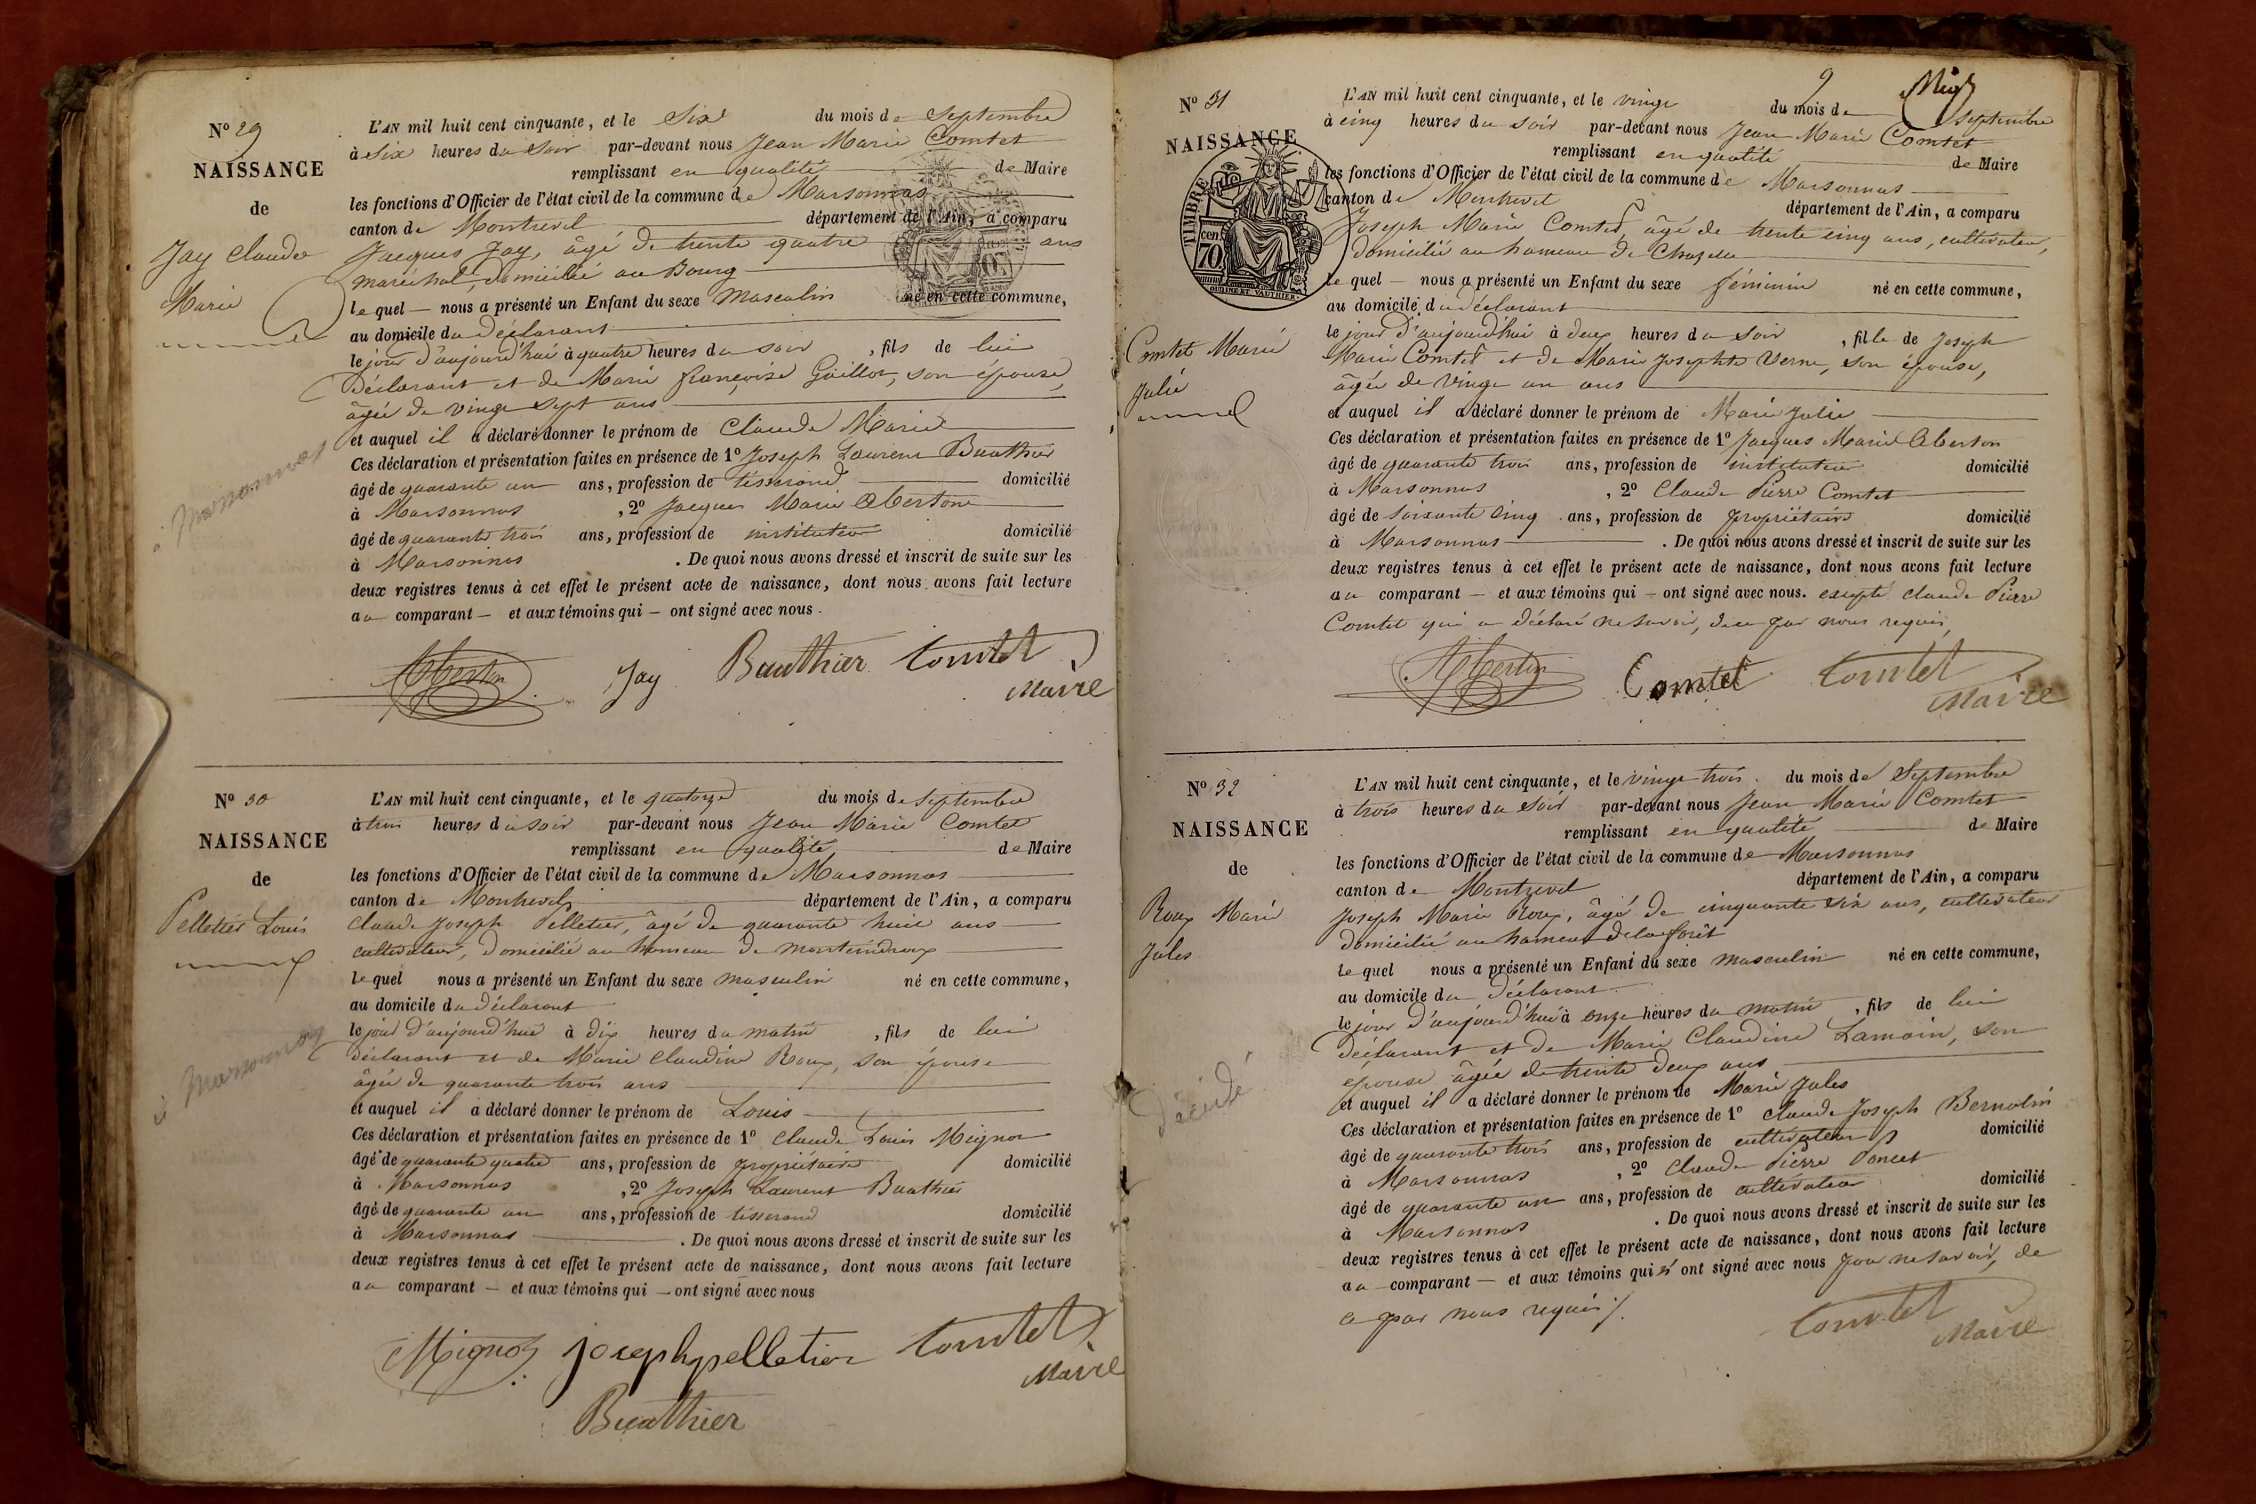 N° 29
NAISSANCE
de
Jay Claude
Marie
L'AN mil huit cent cinquante, et le Six du mois de Septembre
à six heures du soir par-devant nous Jean Marie Comtet
remplissant en qualité de Maire
les fonctions d'Officier de l'état civil de la commune de Marsonnas
canton de Montrevel département de l'Ain, a comparu
Jacques Jay, âgé de trente quatre ans
maréchal, domicilié au Bourg
le quel nous a présenté un Enfant du sexe masculin né en cette commune,
au domicile du déclarant
le jour d'aujourd'hui à quatre heures du soir, fils de lui
déclarant et de Marie françoise Guillot, son épouse,
âgée de vingt sept ans
et auquel il a déclaré donner le prénom de Claude Marie
Ces déclaration et présentation faites en présence de 1° Joseph Laurent Buathier
âgé de quarante un ans, profession de tisserand domicilié
à Marsonnas, 2° Jacques Marie Alberton
âgé de quarante trois ans, profession de instituteur domicilié
à Marsonnas. De quoi nous avons dressé et inscrit de suite sur les
deux registres tenus à cet effet le présent acte de naissance, dont nous avons fait lecture
au comparant et aux témoins qui ont signé avec nous.
Jay Buathier Comtet
Maire
N° 30
NAISSANCE
de
Pelletier Louis
L'AN mil huit cent cinquante, et le quatorze du mois de Septembre
à trois heures du soir par-devant nous Jean Marie Comtet
remplissant en qualité de Maire
les fonctions d'Officier de l'état civil de la commune de Marsonnas
canton de Montrevel département de l'Ain, a comparu
Claude Joseph Pelletier, âgé de quarante huit ans
cultivateur, domicilié au hameau de
le quel nous a présenté un Enfant du sexe masculin né en cette commune,
au domicile du déclarant
le jour d'aujourd'hui à dix heures du matin, fils de lui
déclarant et de Marie Claudine Roux, son épouse
âgée de quarante trois ans
et auquel il a déclaré donner le prénom de Louis
Ces déclaration et présentation faites en présence de 1° Claude Louis Mignot
âgé de quarante quatre ans, profession de propriétaire domicilié
à Marsonnas, 2° Joseph Laurent Buathier
âgé de quarante un ans, profession de tisserand domicilié
à Marsonnas. De quoi nous avons dressé et inscrit de suite sur les
deux registres tenus à cet effet le présent acte de naissance, dont nous avons fait lecture
au comparant et aux témoins qui ont signé avec nous
Mignot joseph pelletier Comtet
Maire
Buathier
9
N° 31
NAISSANCE
TIMBRE
70
cen
Comtet Marie
Julie
L'AN mil huit cent cinquante, et le vingt du mois de septembre
à cinq heures du soir par-devant nous Jean Marie Comtet
remplissant en qualité de Maire
les fonctions d'Officier de l'état civil de la commune de Marsonnas
canton de Montrevel département de l'Ain, a comparu
Joseph Marie Comtet, âgé de trente cinq ans, cultivateur,
domicilié au hameau de
le quel nous a présenté un Enfant du sexe féminin né en cette commune,
au domicile du déclarant
le jour d'aujourd'hui à deux heures du soir, fille de Joseph
Marie Comtet et de Marie Josephte Verne, son épouse,
âgée de vingt un ans
et auquel il a déclaré donner le prénom de Marie Julie
Ces déclaration et présentation faites en présence de 1° Jacques Marie Alberton
âgé de quarante trois ans, profession de instituteur domicilié
à Marsonnas, 2° Claude Pierre Comtet
âgé de soixante cinq ans, profession de propriétaire domicilié
à Marsonnas. De quoi nous avons dressé et inscrit de suite sur les
deux registres tenus à cet effet le présent acte de naissance, dont nous avons fait lecture
au comparant et aux témoins qui ont signé avec nous. excepté Claude Pierre
Comtet qui a déclaré ne savoir, de ce par nous requis,
Comtet Comtet
Maire
N° 32
NAISSANCE
de
Roux Marie
Jules
décédé
L'AN mil huit cent cinquante, et le vingt trois du mois de Septembre
à trois heures du soir par-devant nous Jean Marie Comtet
remplissant en qualité de Maire
les fonctions d'Officier de l'état civil de la commune de Marsonnas
canton de Montrevel département de l'Ain, a comparu
Joseph Marie Roux, âgé de cinquante six ans, cultivateur
domicilié au hameau de la forêt
le quel nous a présenté un Enfant du sexe masculin né en cette commune,
au domicile du déclarant
le jour d'aujourd'hui à onze heures du matin, fils de lui
déclarant et de Marie Claudine Lamain, son
épouse âgée de trente deux ans
et auquel il a déclaré donner le prénom de Marie Jules
Ces déclaration et présentation faites en présence de 1° Claude Joseph Bernolin
âgé de quarante trois ans, profession de cultivateur domicilié
à Marsonnas, 2° Claude Pierre Poncet
âgé de quarante un ans, profession de cultivateur domicilié
à Marsonnas. De quoi nous avons dressé et inscrit de suite sur les
deux registres tenus à cet effet le présent acte de naissance, dont nous avons fait lecture
au comparant et aux témoins qui n'ont signé avec nous pour ne savoir, de
ce par nous requis
Comtet
Maire